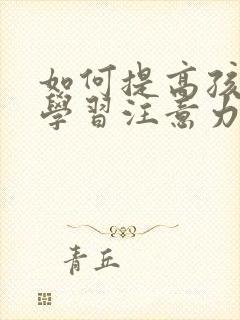 如何提高孩
學習注意力
青丘